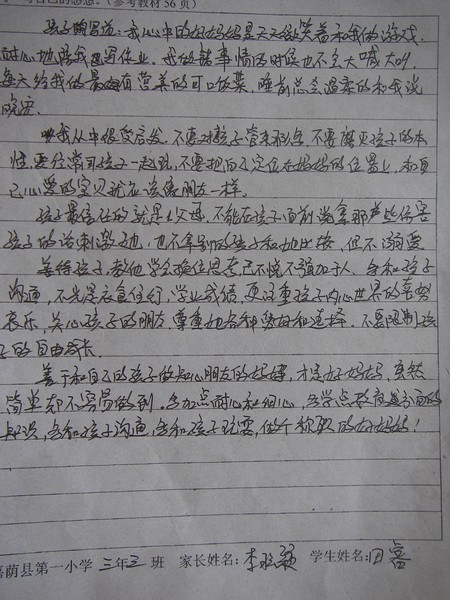 与自己的感想。(参考教材56页)
孩子的写道:我心中的好妈妈是天天微笑着和我做游戏、
耐心地陪我边写作业。我做错事情的时候也不会大喊大叫。
每天给我做最有营养的可口饭菜,睡前总会温柔的和我说
晚安。
我从中很受启发。不要对孩子管束形式,不要磨灭孩子的本
性。要经常和孩子一起玩,不要把自己定位在妈妈的位置上,和自
己心爱的宝贝就应该像朋友一样。
孩子最信任的就是父母,不能在孩子面前说拿那些伤害
孩子的话刺激她,也不拿别的孩子和她比较,但不溺爱。
善待孩子,教她学会换位思考,己不悦不强加于人,多和孩子
沟通,不光是衣食住行,学业成绩,更注重孩子内心世界的喜怒
哀乐,关心孩子的朋友,尊重她各种爱好和选择,不要限制孩
子的自由成长。
善于和自己的孩子做知心朋友的妈妈,才是好妈妈,虽然
简单却不容易做到。多加点耐心和细心,多学点教育方面的
知识,多和孩子沟通,多和孩子玩耍,做个称职的好妈妈!
嘉荫县第一小学 三年三班 家长姓名:李 学生姓名:田鑫